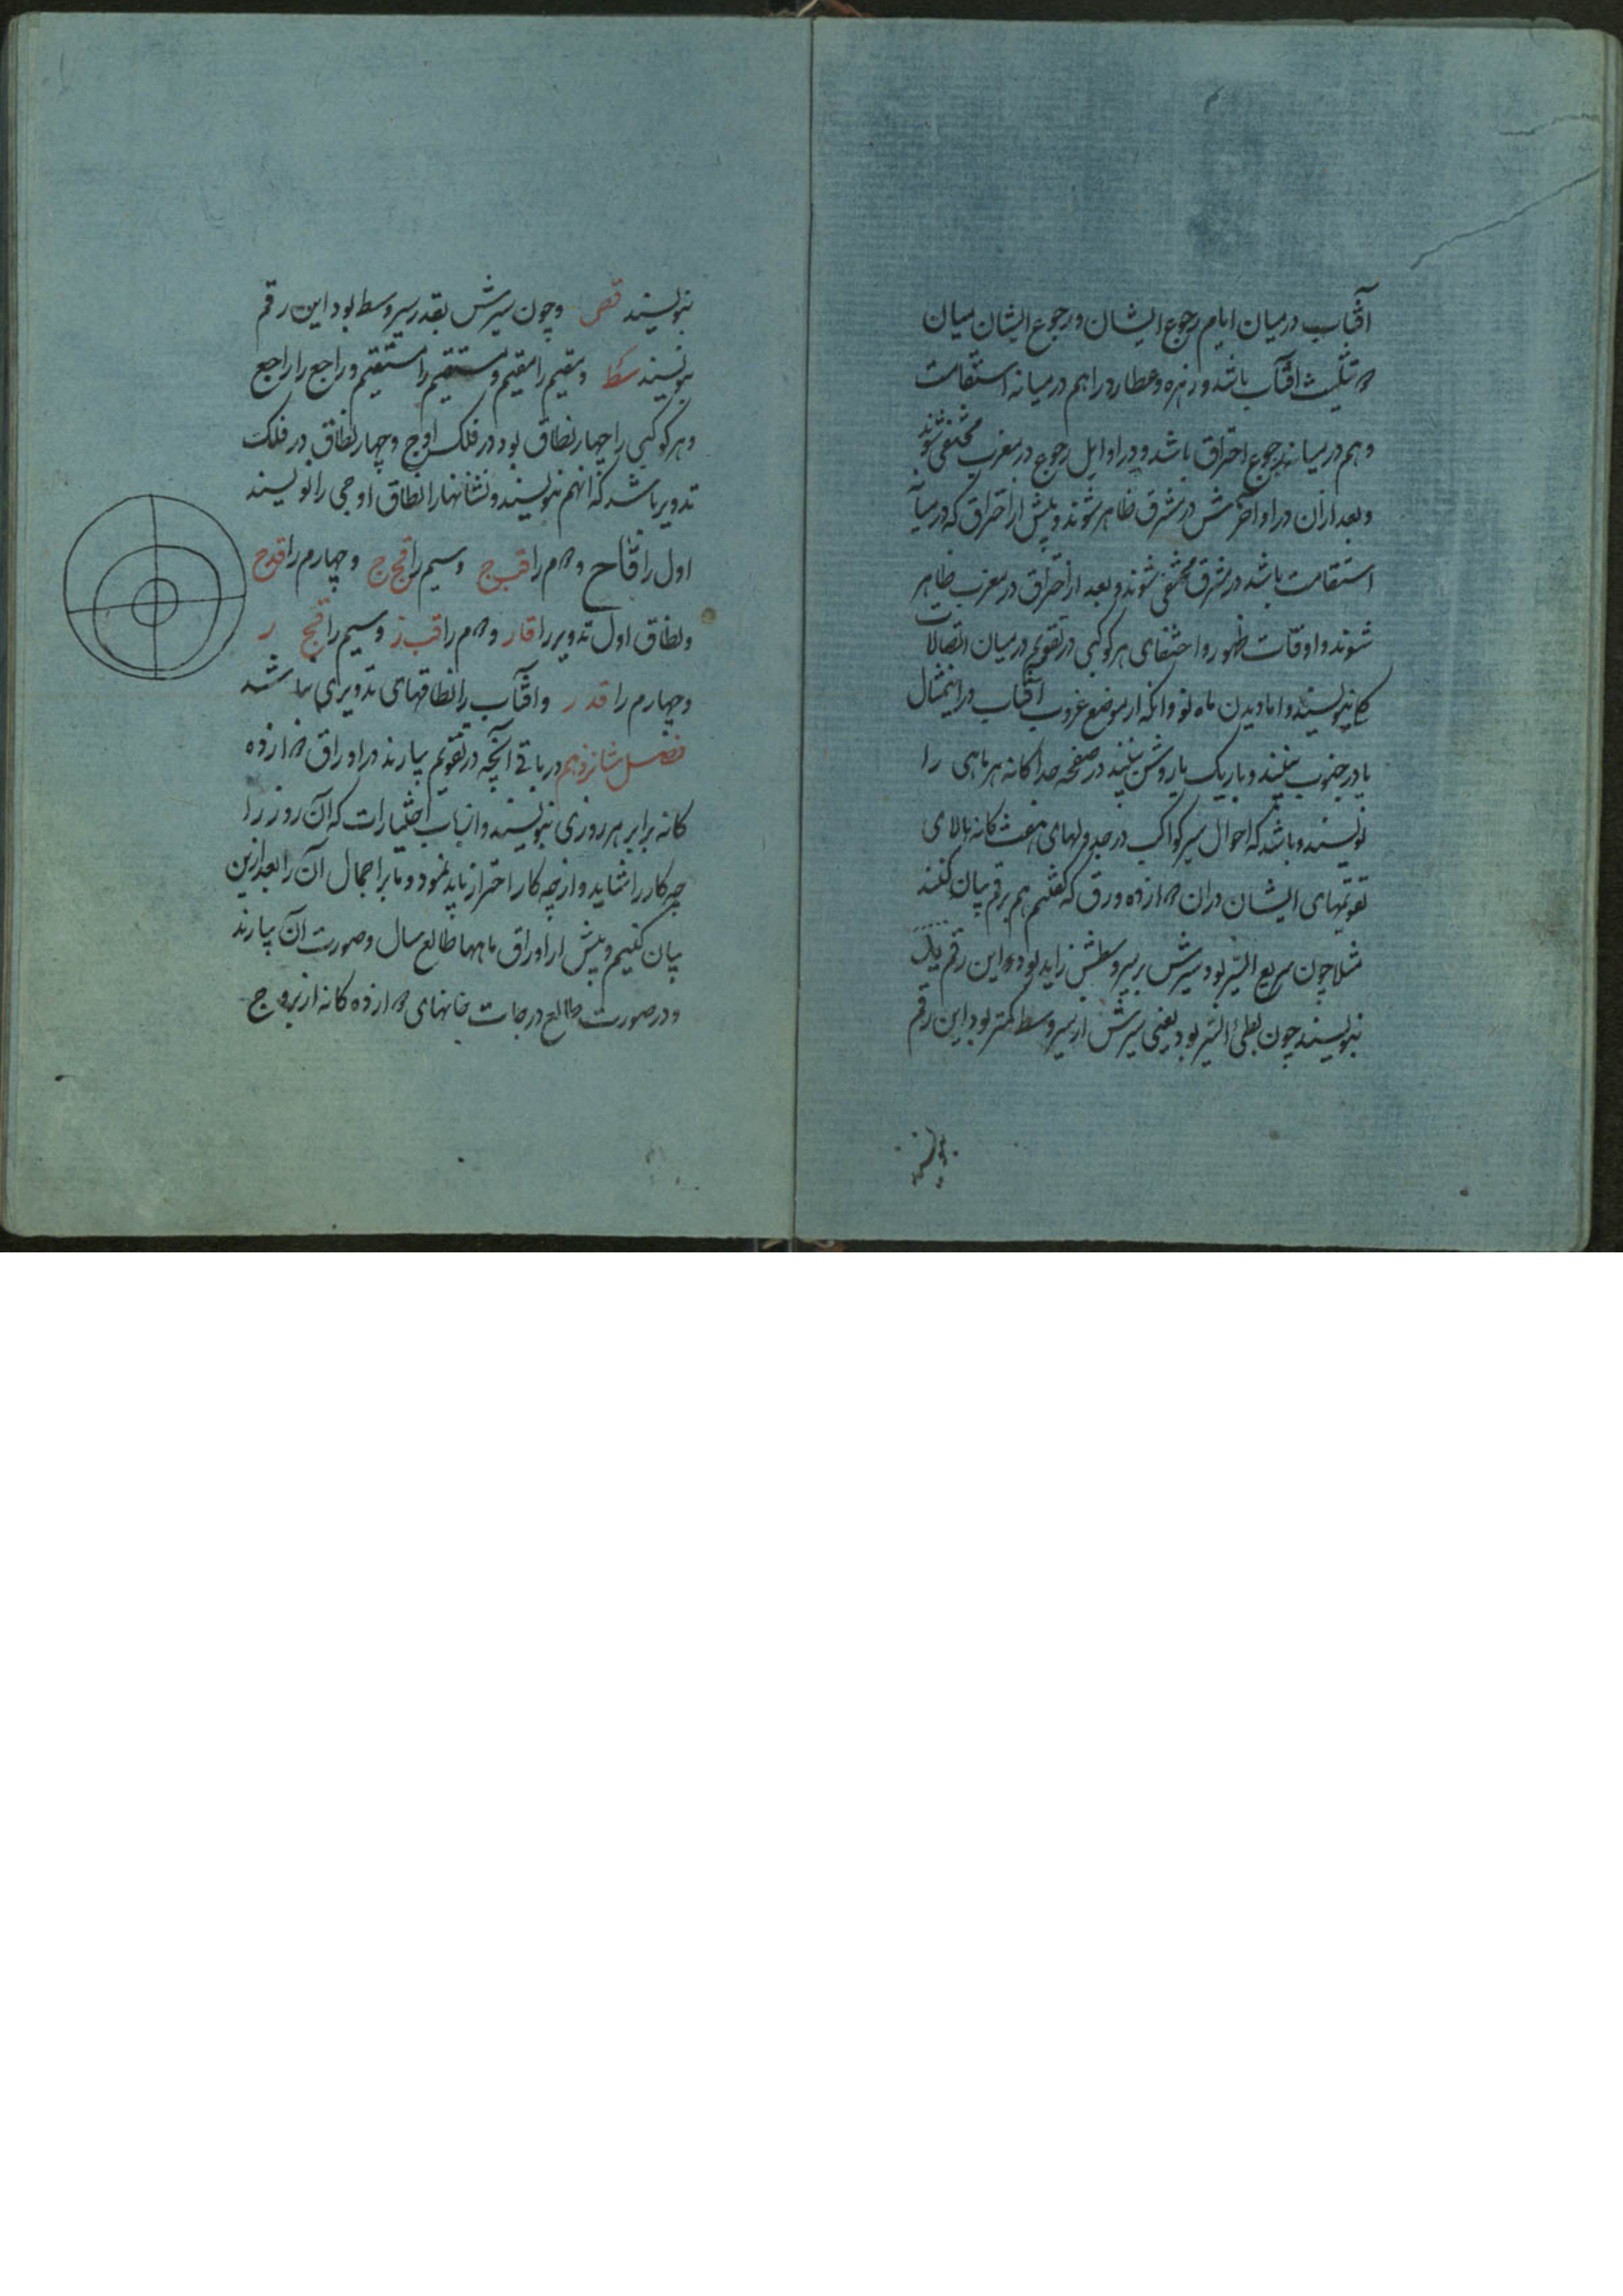 آفتاب در میان ایام رجوع ایشان و رجوع ایشان میان
۲ تثلیث آفتاب باشد و زهره و عطارد را هم در میانه استقامت
و هم در میانه رجوع احتراق باشد و در اوایل رجوع در مغرب مختفی شوند
و بعد ازان در اواخرش در مشرق ظاهر شوند و پیش از احتراق که در میانه
استقامت باشد در مشرق مختفی شوند و بعد از احتراق در مغرب ظاهر
شوند و اوقات ظهور و اختفای هر کوکبی در تقویم در میان اتصالات
بنویسند و اما دیدن ماه نو و انکه از موضع غروب آفتاب در شمال
یا در جنوب بینند و باریک یا روشن بینند در صفحه جداکانه هر ماهی را
نویسند و باشد که احوال سیر کواکب در جدولهای هفت کانه بالای
تقویمهای ایشان دران ۲ازده ورق که کفتیم هم برقم بیان کنند
مثلا چون سریع السیر بود و سیرش بر سیر وسطش زاید بود این رقم
بنویسند چون بطئ السیر بود یعنی سیرش از سیر وسط کمتر بود این رقم
بنویسند
بنویسند قص و چون سیرش بقدر سیر وسط بود این رقم
بنویسند سط و مقیم را مقیم و مستقیم را مستقیم و راجع را راجع
و هر کوکبی را چهار نطاق بود در فلک اوج و چهار نطاق در فلک
تدویر باشد که انهم بنویسند و نشانها را نطاق اوجی را نویسند
اول را قاح و ۲م را قبج و سیم را قجج و چهارم را قدج
و نطاق اول تدویر را قار و ۲م را قب ز و سیم را قج ر
و چهارم را قد ر و آفتاب را نطاقهای تدویری نباشد
فصل شانزدهم در باقی آنچه در تقویم بیارند در اوراق ۲ازده
کانه برابر هر روزی بنویسند و از باب اختیارات که آن روز را
چه کار را شاید و از چه کار احتراز باید نمود و ما بر اجمال آن را بعد ازین
بیان کنیم و پیش از اوراق ماهها طالع سال و صورت آن بیارند
و در صورت طالع درجات خانهای ۲ازده کانه از بروج